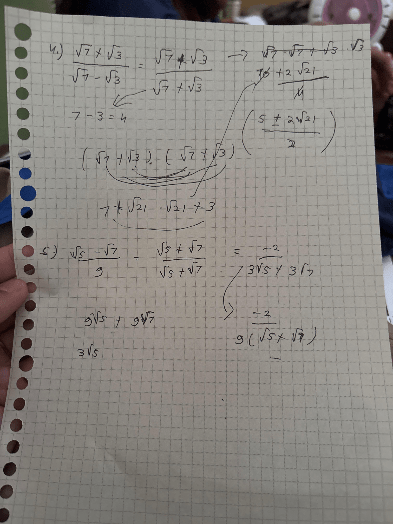 4.) (√7 + √3)/(√7 - √3) = (√7 + √3)/(√7 + √3) → √7 · √7 + √3 · √3
(10 + 2√21)/4
7 - 3 = 4
((5 ± 2√21)/2)
(√7 + √3) · (√7 + √3)
7 + √21 √21 + 3
5) (√5 - √7)/9 - (√5 + √7)/(√5 + √7) = -2/(3√5 + 3√7)
9√5 + 9√7
-2/(9(√5 + √7))
3√5